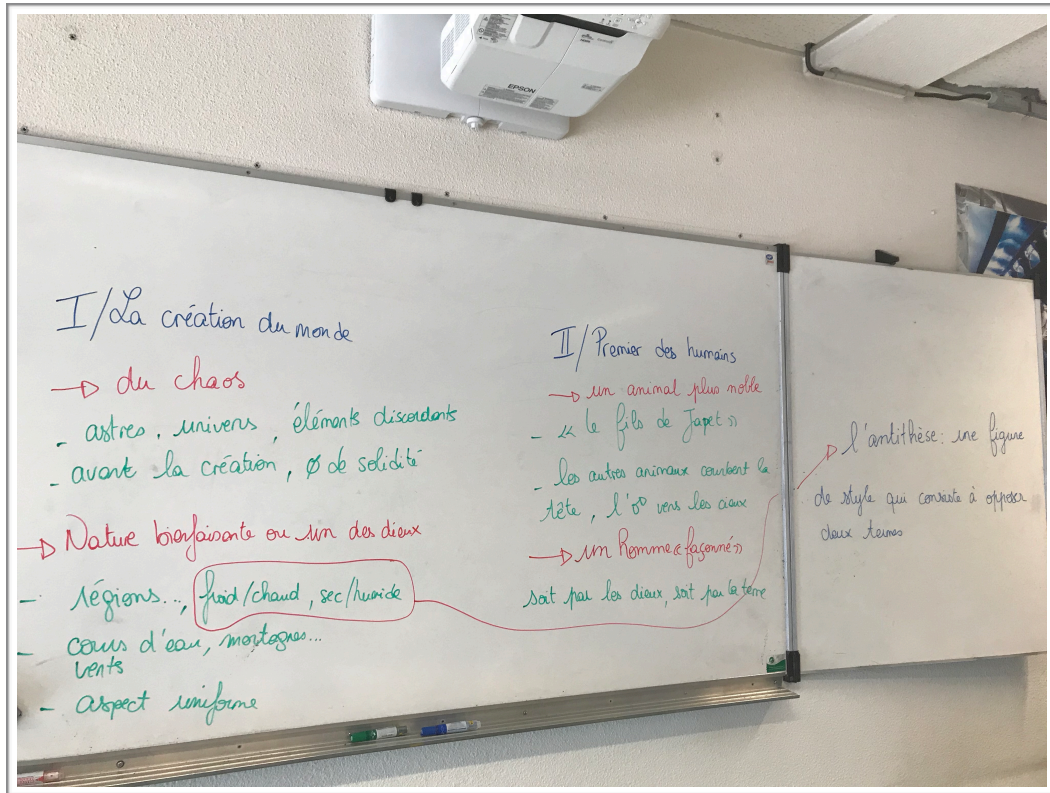 EPSON
I/La création du monde
→ du chaos
- astres, univers, éléments discordants
- avant la création, ∅ de solidité
→ Nature bienfaisante ou un des dieux
- régions..., froid/chaud, sec/humide
- cours d'eau, montagnes...
vents
- aspect uniforme
II/Premier des humains
→ un animal plus noble
- « le fils de Japet »
- les autres animaux courbent la
tête, l'o° vers les cieux
→ un Homme « façonné »
soit par les dieux, soit par la terre
→ l'antithèse : une figure
de style qui consiste à opposer
deux termes